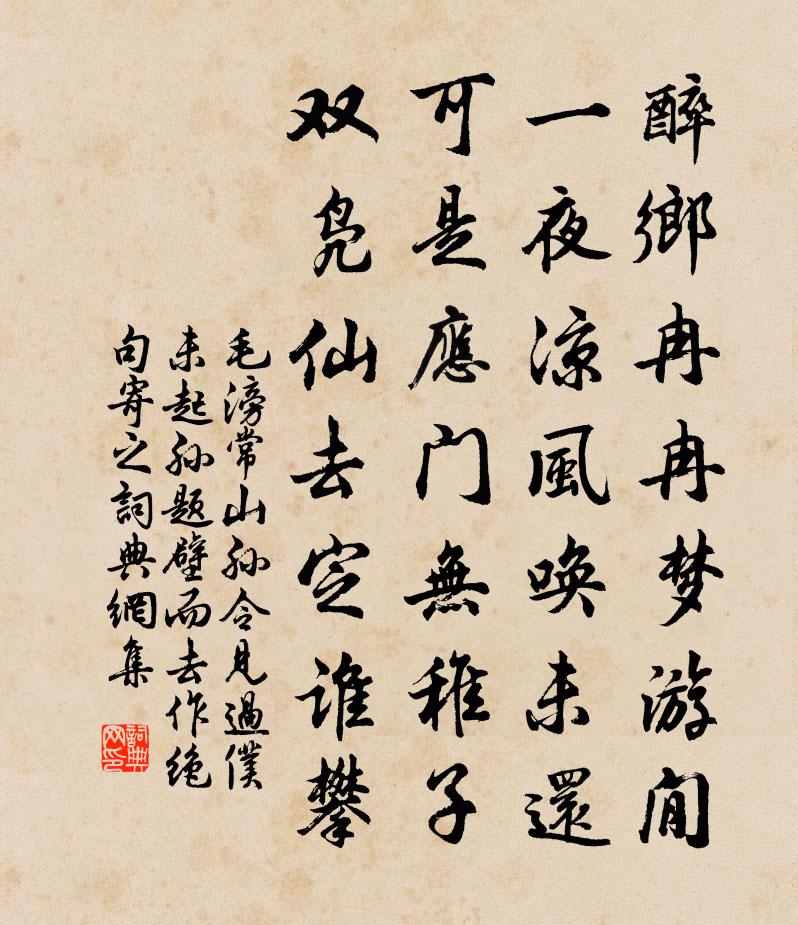 醉鄉冉冉梦游閒
一夜凉風唤未還
可是應門無稚子
双凫仙去定谁攀
毛滂常山孙令見過僕
未起孙题壁而去作绝
句寄之詞典網集
詞典网印